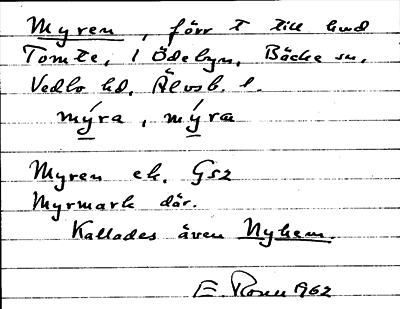 Myren, förr t till hmd
Tomte, 1 Ödebyn, Bäcke sn,
Vedbo hd, Älvsb. l.
mýra, mýra
Myren ek. Gsz
Myrmark där.
Kallades även Nyhem.
E. Ronn 1962